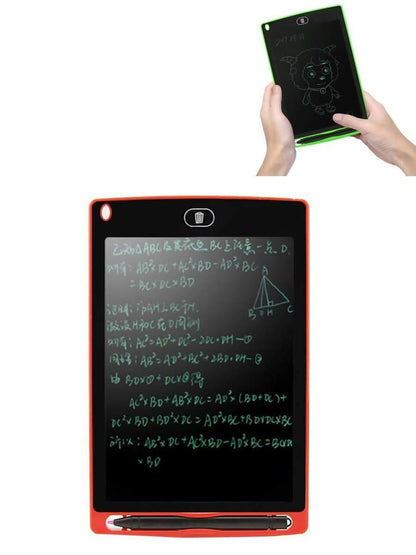 已知△ABC及其底边BC上任意一点D,
则有: AB²×DC+AC²×BD-AD²×BC
=BC×DC×BD
A
B D H C
证明: 作AH⊥BC于H.
则有: AC²=AD²+DC²-2DC·DH-①
同理: AB²=AD²+BD²+2BD·DH-②
由 BD×①+DC×②得
AC²×BD+AB²×DC=AD²×(BD+DC)+
DC²×BD+BD²×DC=AD²×BC+BD×DC×BC
所以: AB²×DC+AC²×BD-AD²×BC=BC×DC
×BD